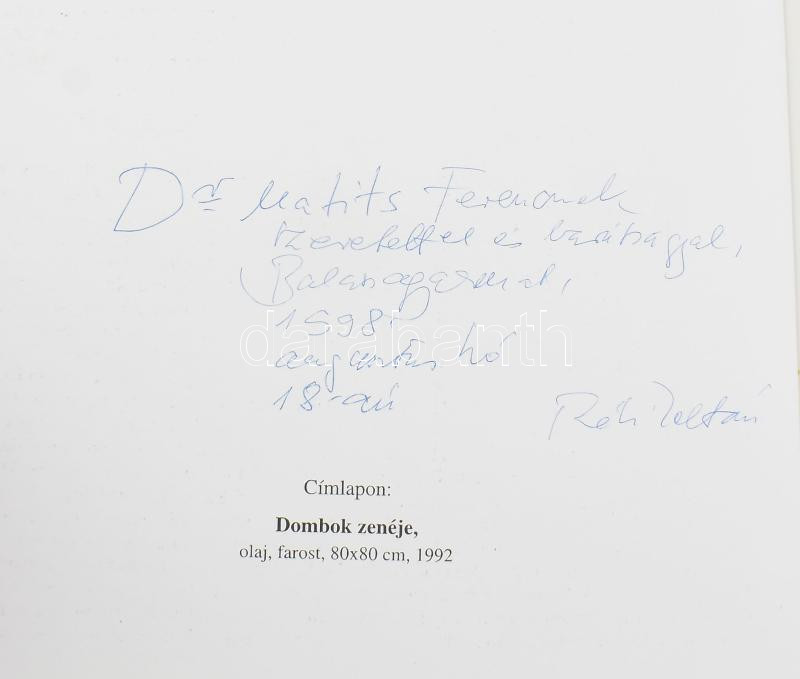 Dr Matits Ferencnek
szeretettel és barátsággal,
Balassagyarmat,
1998.
augusztus hó
18-án
Réti Zoltán
darabanth
Címlapon:
Dombok zenéje,
olaj, farost, 80x80 cm, 1992